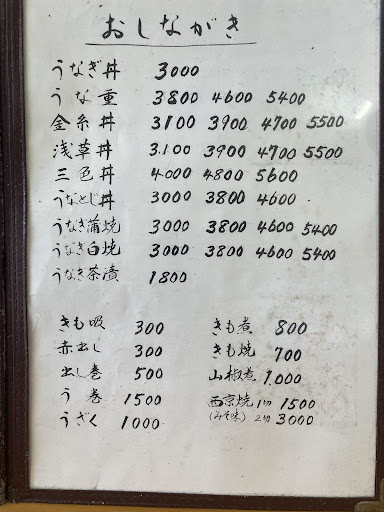 おしながき
うなぎ丼 3000
うな重 3800 4600 5400
金糸丼 3100 3900 4700 5500
浅草丼 3.100 3900 4700 5500
三色丼 4000 4800 5600
うなとじ丼 3000 3800 4600
うなぎ蒲焼 3000 3800 4600 5400
うなぎ白焼 3000 3800 4600 5400
うなぎ茶漬 1800
きも吸 300
赤出し 300
出し巻 500
う巻 1500
うざく 1000
きも煮 800
きも焼 700
山椒煮 1.000
西京焼 1切 1500
(みそ味) 2切 3000